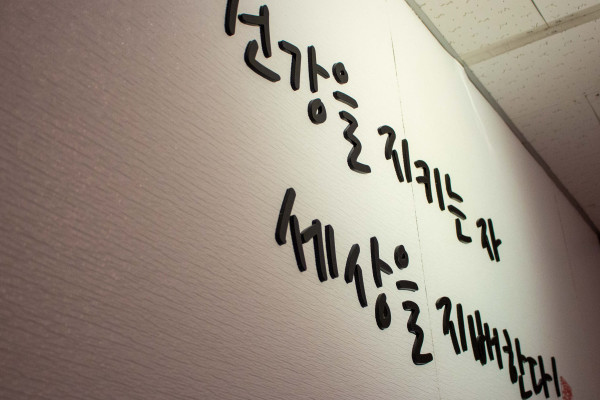 건강을 지키는 자
세상을 지배한다!